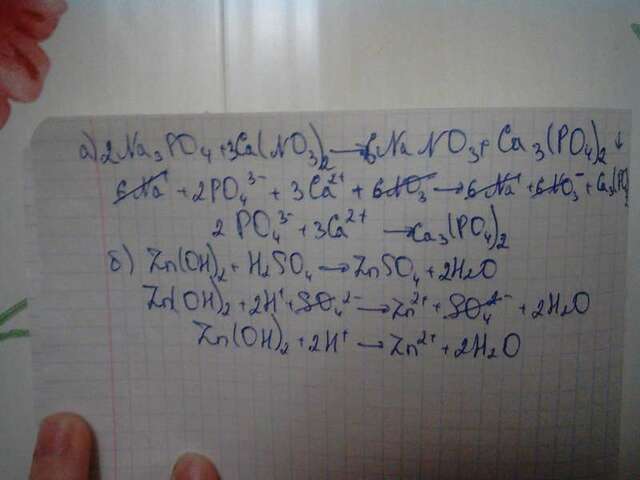 а) 2Na₃PO₄ + 3Ca(NO₃)₂ → 6NaNO₃ + Ca₃(PO₄)₂↓
6Na⁺ + 2PO₄³⁻ + 3Ca²⁺ + 6NO₃⁻ → 6Na⁺ + 6NO₃⁻ + Ca₃(PO₄)
2PO₄³⁻ + 3Ca²⁺ → Ca₃(PO₄)₂
б) Zn(OH)₂ + H₂SO₄ → ZnSO₄ + 2H₂O
Zn(OH)₂ + 2H⁺ + SO₄²⁻ → Zn²⁺ + SO₄²⁻ + 2H₂O
Zn(OH)₂ + 2H⁺ → Zn²⁺ + 2H₂O